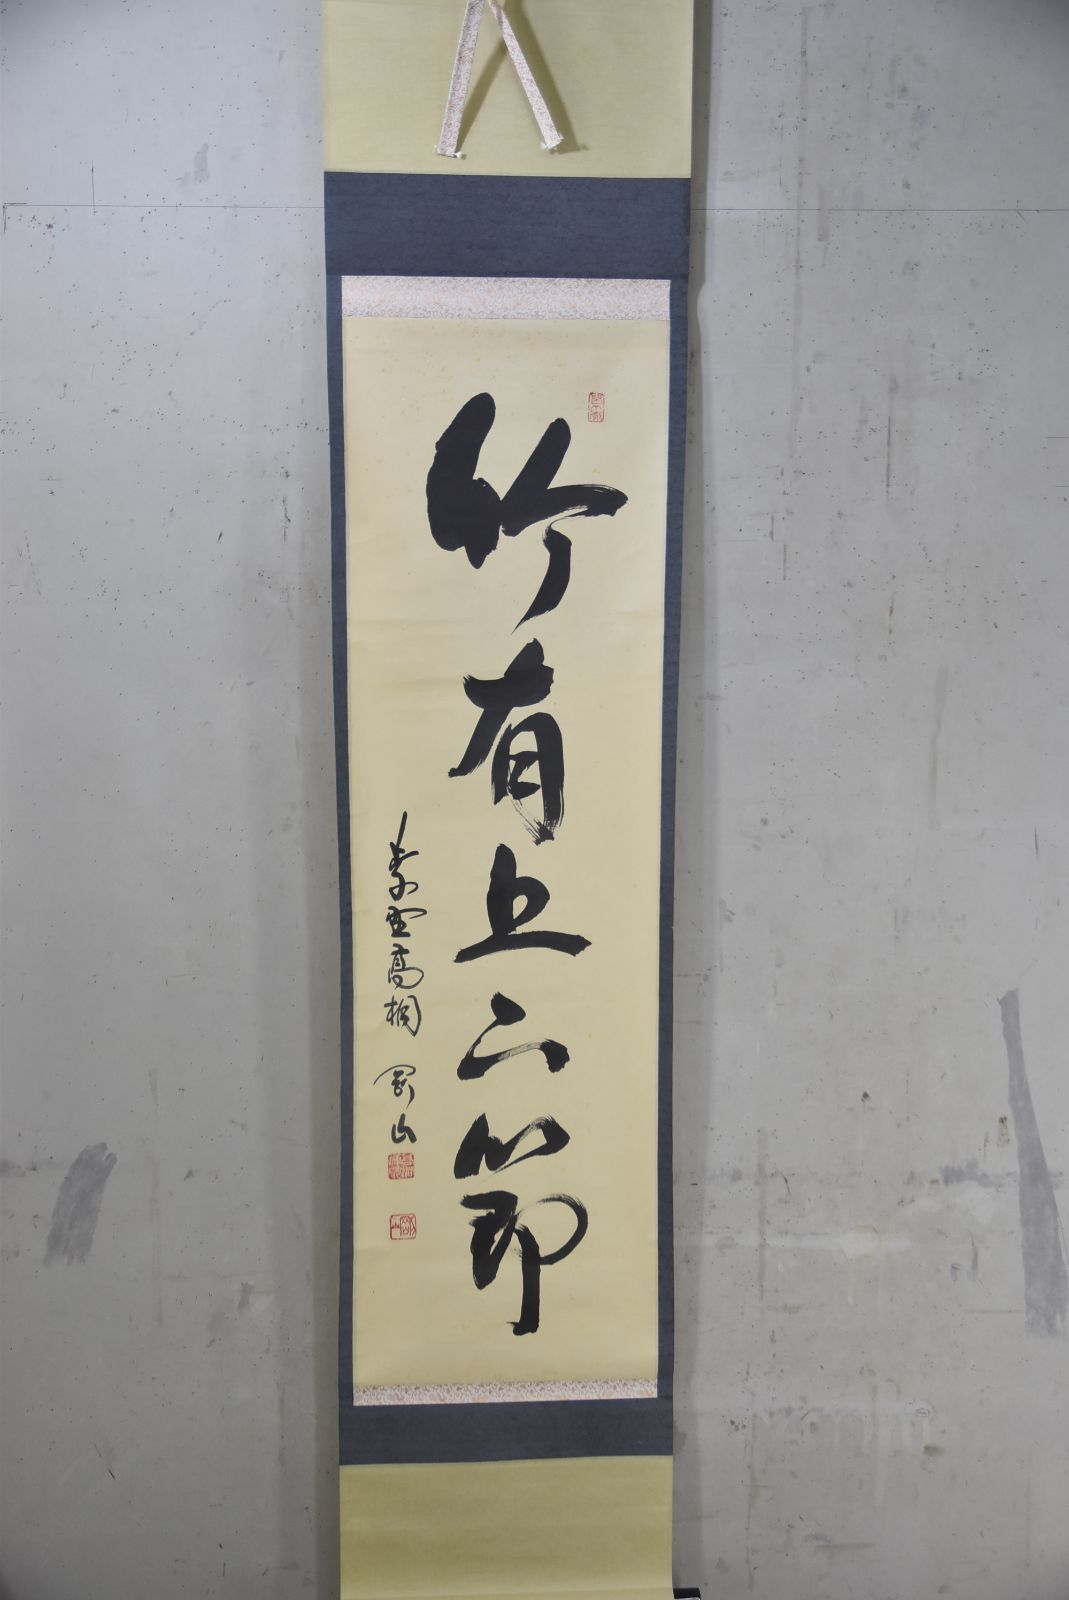 竹有上下節
紫雲高桐 剛山